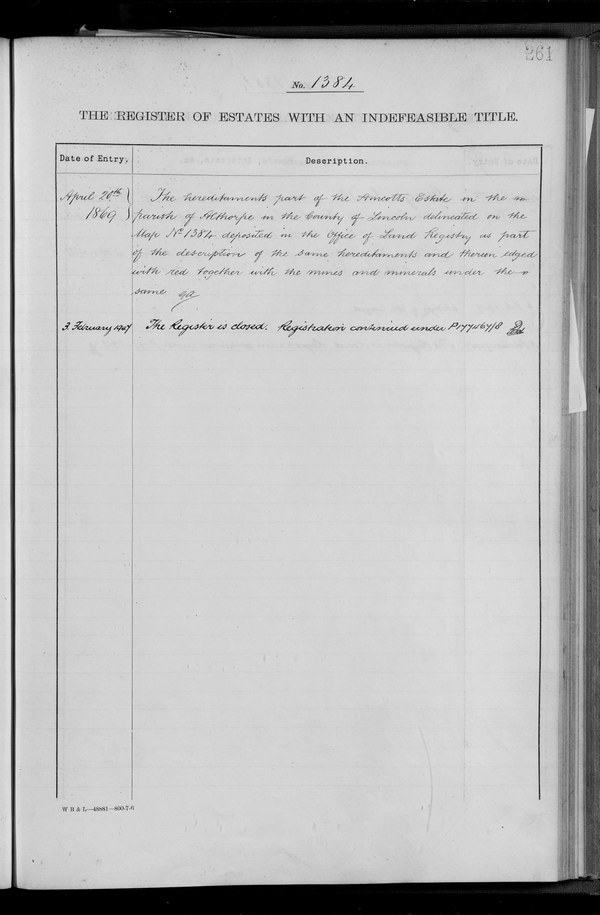 261
No. 1384
THE REGISTER OF ESTATES WITH AN INDEFEASIBLE TITLE.
Date of Entry. Description.
April 20th 1869
The hereditaments part of the Amcotts Estate in the
parish of Althorpe in the County of Lincoln delineated on the
Map No 1384 deposited in the Office of Land Registry as part
of the description of the same hereditaments and therein edged
with red together with the mines and minerals under the
same
3. February 1947 The Register is closed. Registration continued under
W B & L—49881—800-7-6